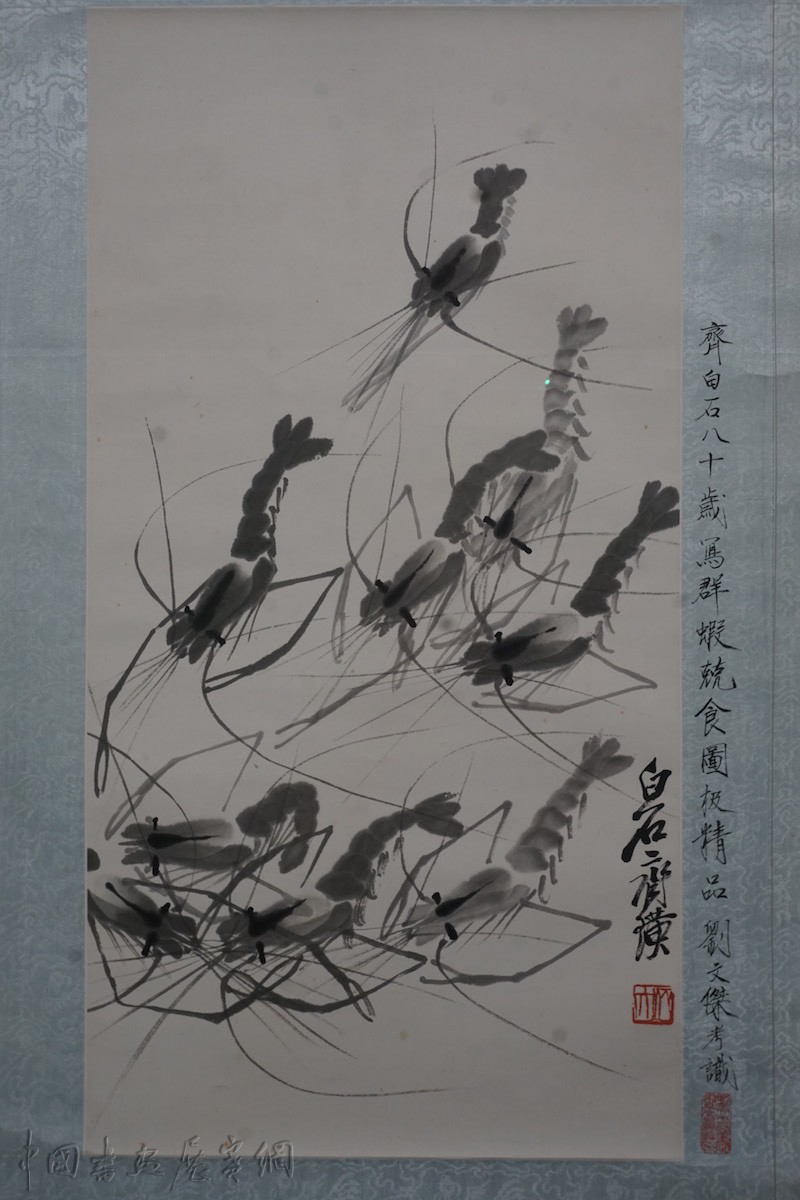 齊白石八十歲寫群蝦競食圖極精品 劉文傑考識
白石 齊璜
中國書畫展賽網